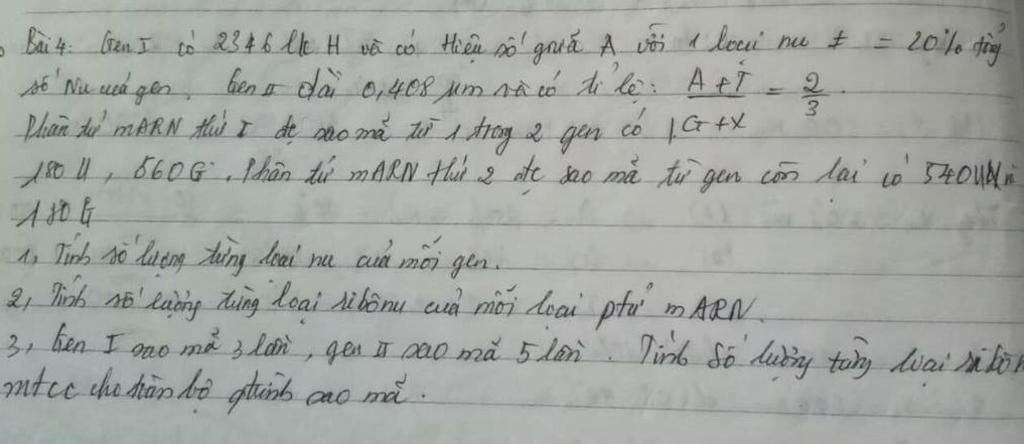 Bài 4: Gen I có 2346 lk H và có Hiệu số giữa A với 1 loại nu ≠ = 20% tổng
số Nu của gen. Gen II dài 0,408 µm và có tỉ lệ: A+T/G+X = 2/3.
Phân tử mARN thứ I đc sao mã từ 1 trong 2 gen có
180 U, 560G. Phân tử mARN thứ 2 đc sao mã từ gen còn lại có 540U và
180 G
1, Tính số lượng từng loại nu của mỗi gen.
2, Tính số lượng từng loại ribônu của mỗi loại ptử mARN.
3, Gen I sao mã 3 lần, gen II sao mã 5 lần. Tính số lượng từng loại ribôn
mtcc cho toàn bộ qtrình sao mã.